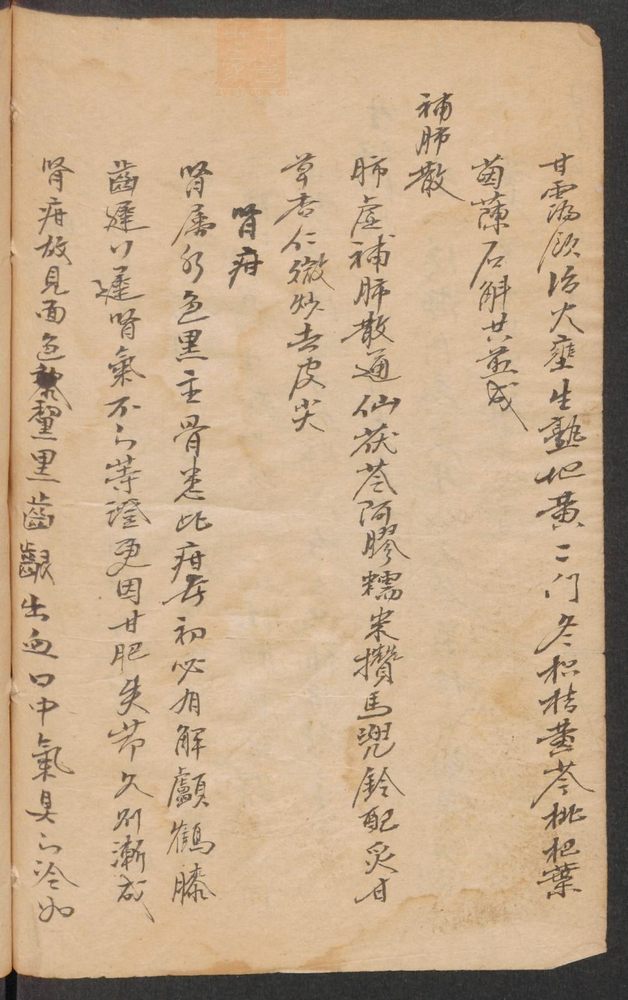 甘露飲治火壅生熟地黄二门冬枳桔黄芩枇杷葉
茵蔯石斛共煎成
補肺散
肺虚補肺散通仙茯苓阿膠糯米攢馬兜鈴配炙甘
草杏仁微炒去皮尖
腎疳
腎屬水色黒主骨患此疳者初必有解顱鶴膝
齒遲行遲腎氣不足等證更因甘肥失節久則漸成
腎疳故見面色黧黒齒齦出血口中氣臭足冷如